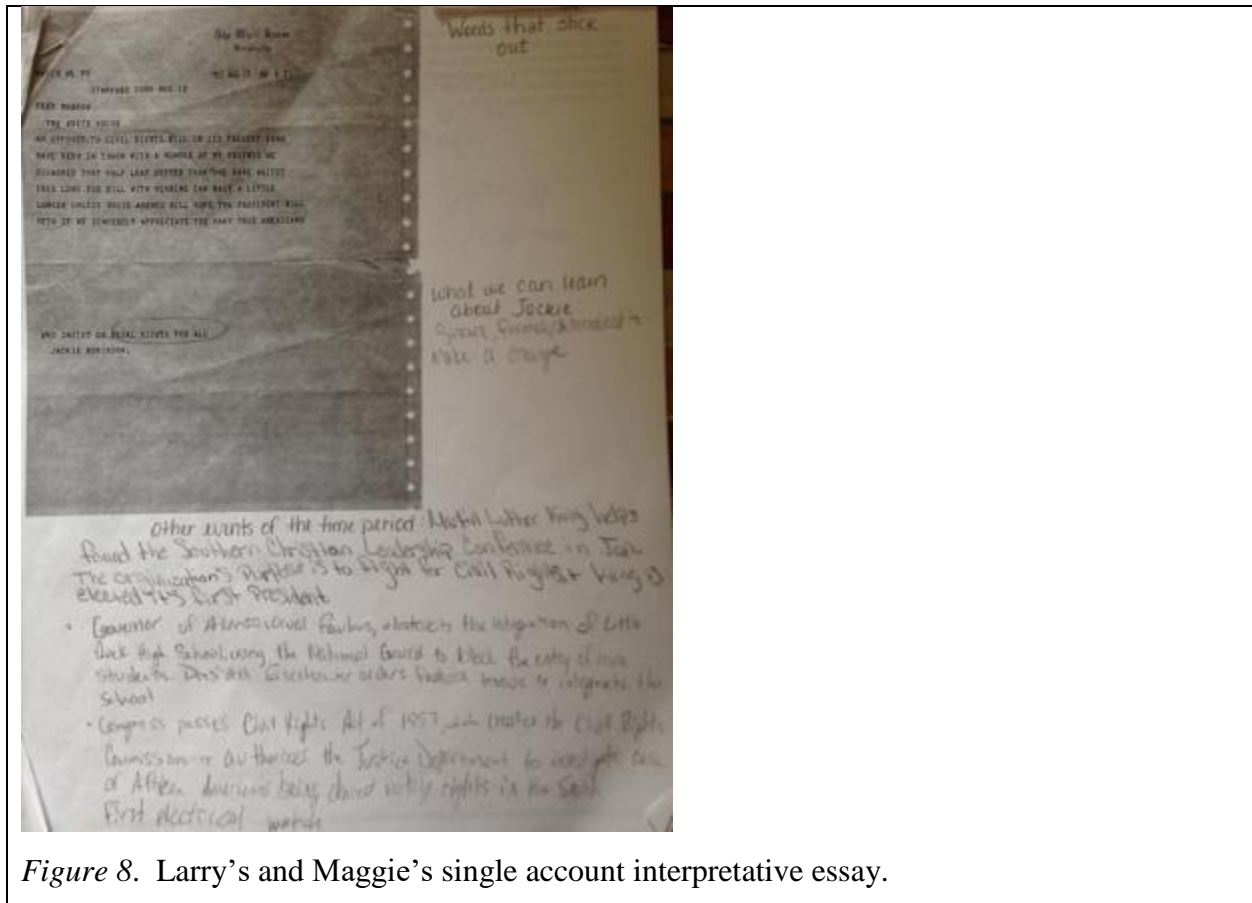 THE WHITE HOUSE
AM OPPOSED TO CIVIL RIGHTS BILL IN ITS PRESENT FORM
HAVE BEEN IN TOUCH WITH A NUMBER OF MY FRIENDS WE
THAT HALF LOAF BETTER THAN HAVE WAITED
THIS LONG FOR BILL WITH MEANING CAN WAIT A LITTLE
LONGER BILL HOPE THE PRESIDENT WILL
VETO IT WE SINCERELY APPRECIATE THE MANY TRUE AMERICANS
WHO INSIST ON EQUAL RIGHTS FOR ALL
JACKIE ROBINSON.
Words that stick
out
What we can learn
about Jackie
make a change
other events of the time period: Martin Luther King helps
found the Southern Christian Leadership Conference in Jan.
The organization's purpose is to fight for Civil Rights + King is
elected its first President
Governor of Faubus, obstructs the integration of Little
Rock High School, using the National Guard to block the entry of nine
students. President Eisenhower orders troops to integrate the
School
Congress passes Civil Rights Act of 1957, creates the Civil Rights
Commission authorizes the Justice Department to investigate
of African Americans being denied voting rights in the South
First electrical watch
Figure 8. Larry’s and Maggie’s single account interpretative essay.